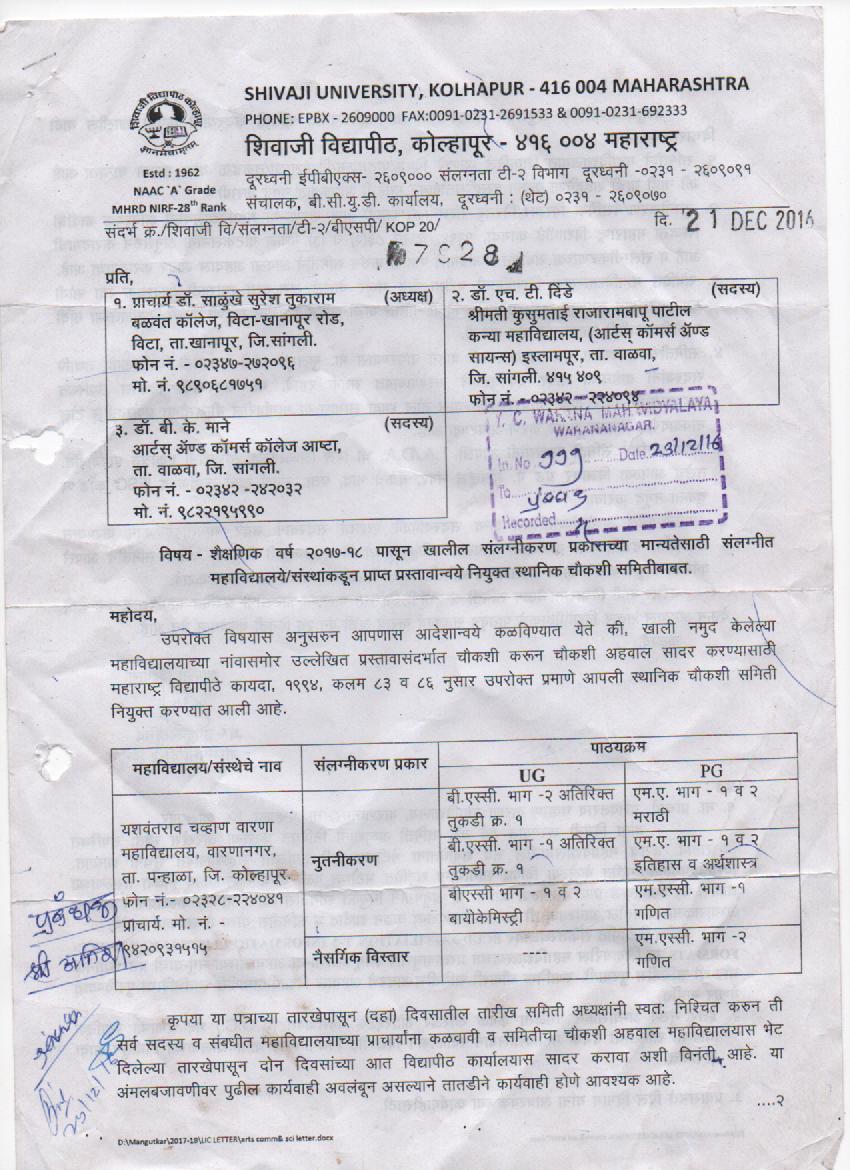 SHIVAJI UNIVERSITY, KOLHAPUR - 416 004 MAHARASHTRA
PHONE: EPBX - 2609000 FAX:0091-0231-2691533 & 0091-0231-692333
शिवाजी विद्यापीठ, कोल्हापूर - ४१६ ००४ महाराष्ट्र
शिवाजी विद्यापीठ कोल्हापूर
Estd : 1962
NAAC `A` Grade
MHRD NIRF-28th Rank
दूरध्वनी ईपीबीएक्स- २६०९००० संलग्नता टी-२ विभाग दूरध्वनी -०२३१ - २६०९०९१
संचालक, बी.सी.यु.डी. कार्यालय, दूरध्वनी : (थेट) ०२३१ - २६०९०७०
संदर्भ क्र./शिवाजी वि/संलग्नता/टी-२/बीएसपी/ KOP 20/
दि. 21 DEC 2016
7028
प्रति,
१. प्राचार्य डॉ. साळुंखे सुरेश तुकाराम (अध्यक्ष)
बळवंत कॉलेज, विटा-खानापूर रोड,
विटा, ता.खानापूर, जि.सांगली.
फोन नं. - ०२३४७-२७२०९६
मो. नं. ९८९०६८१७५१
२. डॉ. एच. टी. दिंडे (सदस्य)
श्रीमती कुसुमताई राजारामबापू पाटील
कन्या महाविद्यालय, (आर्टस् कॉमर्स ॲण्ड
सायन्स) इस्लामपूर, ता. वाळवा,
जि. सांगली. ४१५ ४०९
फोन नं. - ०२३४२ - २२४०९४
३. डॉ. बी. के. माने (सदस्य)
आर्टस् ॲण्ड कॉमर्स कॉलेज आष्टा,
ता. वाळवा, जि. सांगली.
फोन नं. - ०२३४२ -२४२०३२
मो. नं. ९८२२१९५९९०
Y. C. WARANA MAHAVIDYALAYA
WARANANAGAR.
In. No. 999 Date 23/12/16
To
Recorded
विषय - शैक्षणिक वर्ष २०१७-१८ पासून खालील संलग्नीकरण प्रकाराच्या मान्यतेसाठी संलग्नीत
महाविद्यालये/संस्थांकडून प्राप्त प्रस्तावान्वये नियुक्त स्थानिक चौकशी समितीबाबत.
महोदय,
उपरोक्त विषयास अनुसरुन आपणास आदेशान्वये कळविण्यात येते की, खाली नमुद केलेल्या
महाविद्यालयाच्या नांवासमोर उल्लेखित प्रस्तावासंदर्भात चौकशी करून चौकशी अहवाल सादर करण्यासाठी
महाराष्ट्र विद्यापीठे कायदा, १९९४, कलम ८३ व ८६ नुसार उपरोक्त प्रमाणे आपली स्थानिक चौकशी समिती
नियुक्त करण्यात आली आहे.
महाविद्यालय/संस्थेचे नाव संलग्नीकरण प्रकार पाठयक्रम
UG PG
यशवंतराव चव्हाण वारणा
महाविद्यालय, वारणानगर,
ता. पन्हाळा, जि. कोल्हापूर.
फोन नं.- ०२३२८-२२४०४१
प्राचार्य. मो. नं. -
९४२०९३१५१५
नुतनीकरण
बी.एस्सी. भाग -२ अतिरिक्त
तुकडी क्र. १
एम.ए. भाग - १ व २
मराठी
बी.एस्सी. भाग -१ अतिरिक्त
तुकडी क्र. १
एम.ए. भाग - १ व २
इतिहास व अर्थशास्त्र
बीएस्सी भाग - १ व २
बायोकेमिस्ट्री
एम.एस्सी. भाग -१
गणित
नैसर्गिक विस्तार
----
एम.एस्सी. भाग -२
गणित
कृपया या पत्राच्या तारखेपासून (दहा) दिवसातील तारीख समिती अध्यक्षांनी स्वत: निश्चित करुन ती
सर्व सदस्य व संबधीत महाविद्यालयाच्या प्राचार्याना कळवावी व समितीचा चौकशी अहवाल महाविद्यालयास भेट
दिलेल्या तारखेपासून दोन दिवसांच्या आत विद्यापीठ कार्यालयास सादर करावा अशी विनंती आहे. या
अंमलबजावणीवर पुढील कार्यवाही अवलंबून असल्याने तातडीने कार्यवाही होणे आवश्यक आहे.
....२
D:\Mangutkar\2017-18\LIC LETTER\arts comm& sci letter.docx